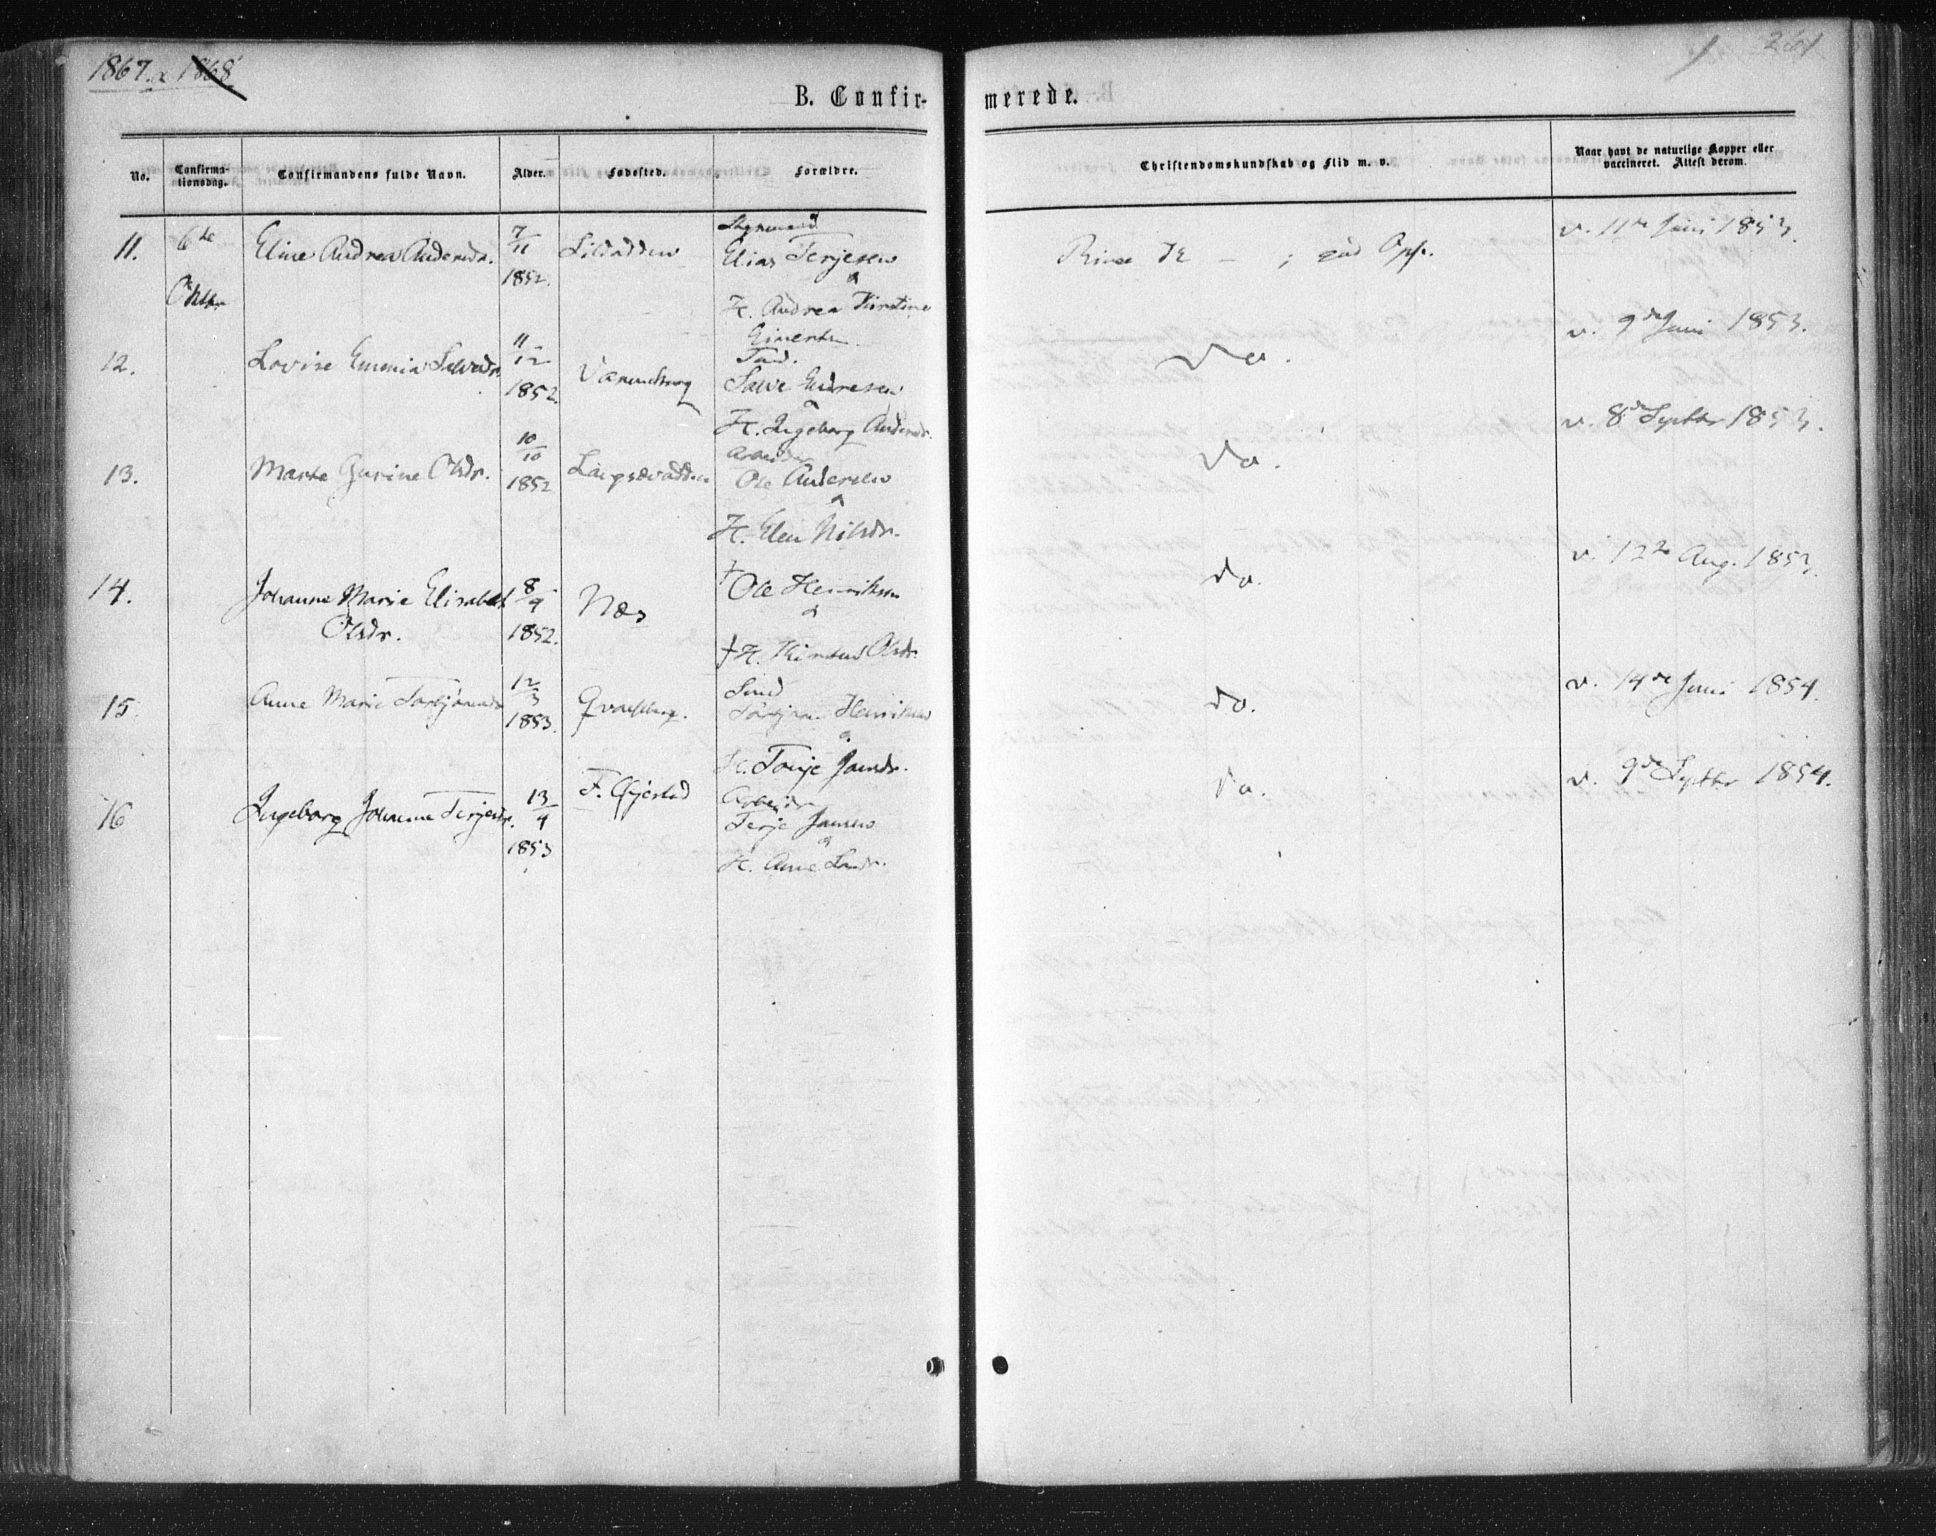 1867. & 1868.
261
B. Confir- merede.
No. Confirma-tionsdag. Confirmandens fulde Navn. Alder. Fødested. Forældre. Christendomskundskab og Flid m. v. Naar havt de naturlige Kopper eller vaccineret. Attest derom.
11. 6te Oktbr. Eline Andrea Andersdr. 7/11 1852.
Elias Terjesen
&
H. Andrea Kirstine
god Opf. v. 11te Juni 1853.
12. Lovise Emmia 11/12 1852.
Salve Endresen
&
H. Ingeborg Andersdr.
Do. v. 9de Juni 1853.
13. Marte Gurine Olsdr. 10/10 1852
Arbeider
Ole Andersen
&
H. Elen Nilsdr.
Do. v. 8de Septbr 1853.
14. Johanne Marie Elisabet Olsdr. 8/9 1852. Næs
† Ole Henriksen
&
† H. Olsdr.
do. v. 12te Aug. 1853.
15. Anne Marie Torbjørnsdr. 12/3 1853.
Torbjørn Henriksen
&
H. Tonje Jonsdr.
do. v. 14de Juni 1854.
16 Ingeborg Johanne Terjesdr. 13/4 1853 F. Gjerstad
Arbeider
Terje Jansen
&
H. Anne
Do. v. 9de Septbr 1854.